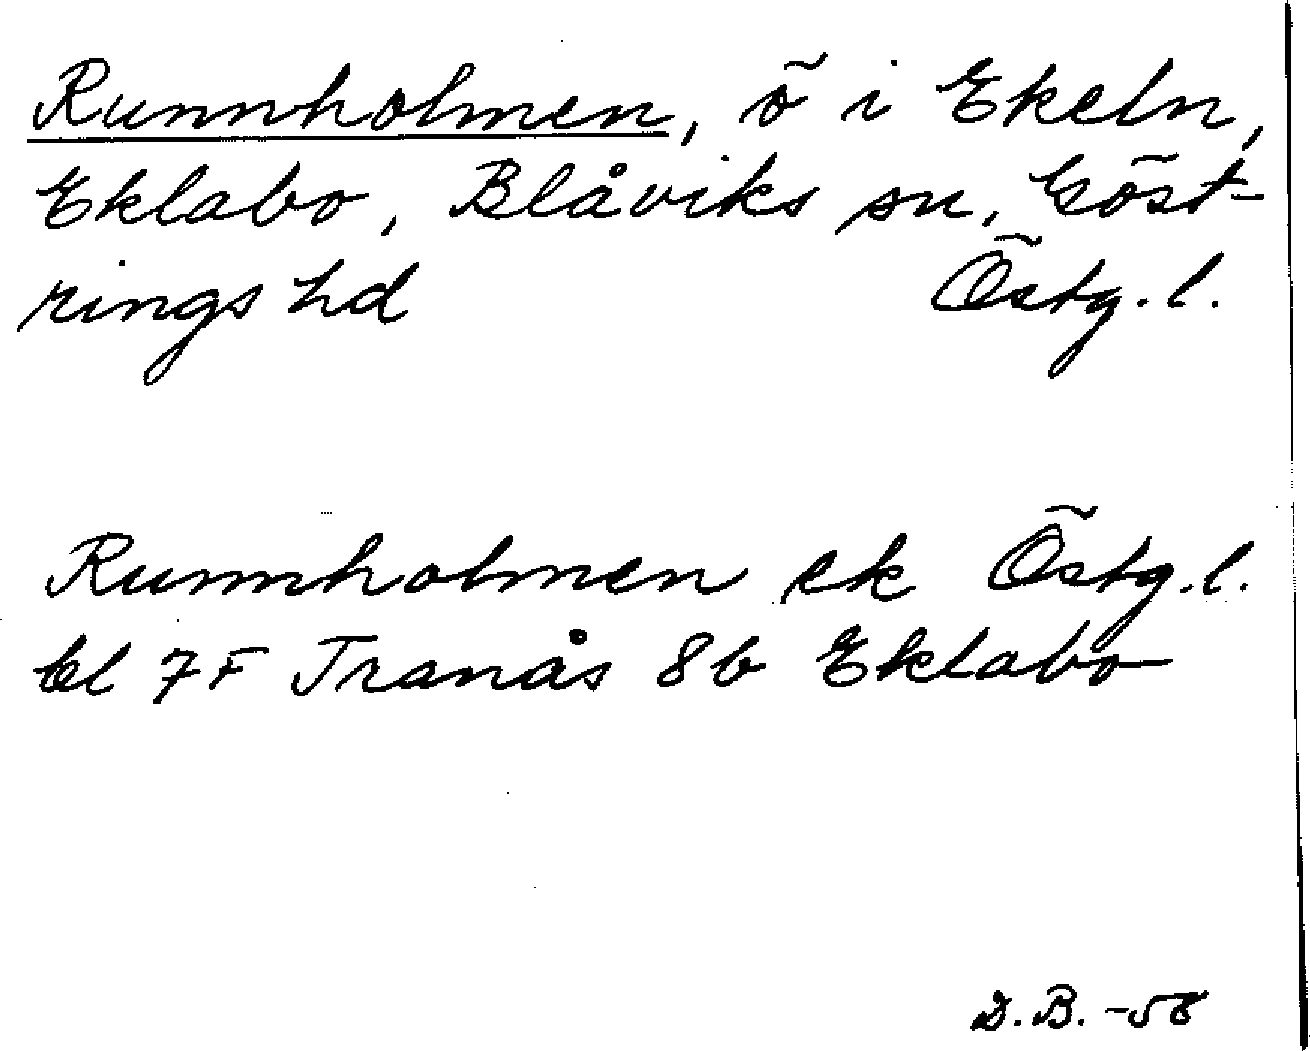 Runnholmen, ö i Ekeln,
Eklabo, Blåviks sn, Göst-
rings hd Östg.l.
Runnholmen ek Östg.l.
bl 7F Tranås 8b Eklabo
D.B. -58